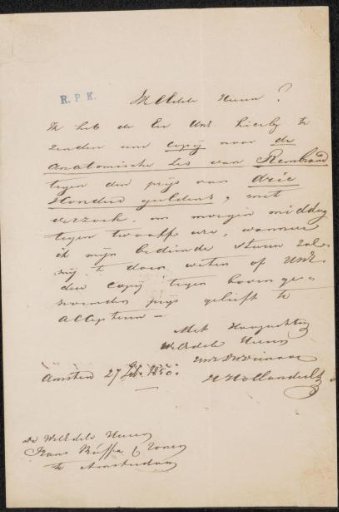 R. P. K.
WelEdele Heeren!
Ik heb de Eer UwE hierby te
zenden een copij naar de
Anatomische les van Rembrand
tegen den prijs van drie
Honderd guldens, met
verzoek om morgen middag
tegen twaalf ure, wanneer
ik mijn bediende sturen zal
mij te doen weten of UwE
den copij tegen boven ge-
noemden prijs gelieft te
Accepteren -
Met Hoogachting
WelEdele Heeren
UwE Dw Dienaar
Hollander
Amsterd 27 1850.
De WelEdele Heeren
Frans Buffa & Zonen
te Amsterdam